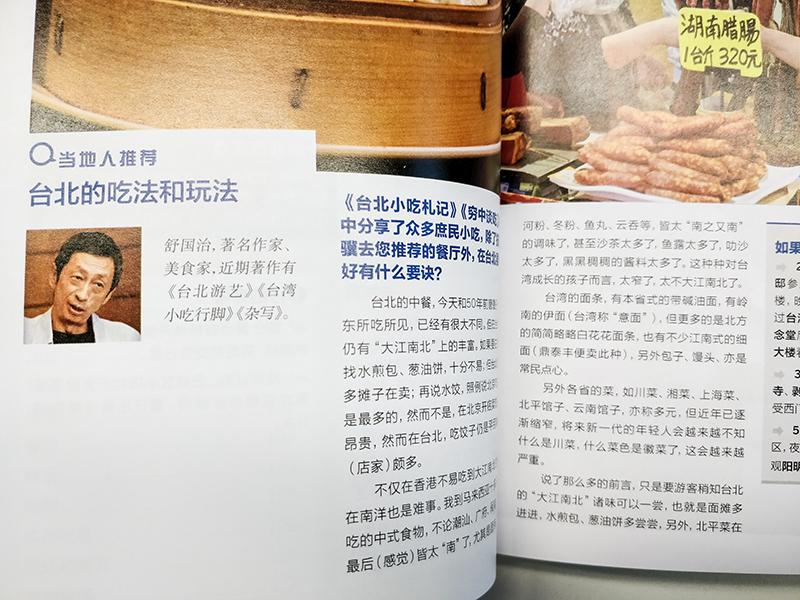 当地人推荐
台北的吃法和玩法
舒国治，著名作家、
美食家，近期著作有
《台北游艺》《台湾
小吃行脚》《杂写》。
《台北小吃札记》《穷中谈吃》
中分享了众多庶民小吃，除了
骥去您推荐的餐厅外，在台北
好有什么要诀？
台北的中餐，今天和50年前
东所吃所见，已经有很大不同。
仍有“大江南北”上的丰富，如果
找水煎包、葱油饼，十分不易；但
多摊子在卖；再说水饺，照例说北京
是最多的，然而不是，在北京开店
昂贵，然而在台北，吃饺子仍是
（店家）颇多。
不仅在香港不易吃到大江南
在南洋也是难事。我到马来西亚
吃的中式食物，不论潮汕、广府、
最后（感觉）皆太“南”了，尤其是
湖南腊腸
1台斤 320元
河粉、冬粉、鱼丸、云吞等，皆太“南之又南”
的调味了，甚至沙茶太多了，鱼露太多了，叻沙
太多了，黑黑稠稠的酱料太多了。这种种对台
湾成长的孩子而言，太窄了，太不大江南北了。
台湾的面条，有本省式的带碱油面，有岭
南的伊面（台湾称“意面”），但更多的是北方
的简简略略白花花面条，也有不少江南式的细
面（鼎泰丰便卖此种），另外包子、馒头、亦是
常民点心。
另外各省的菜，如川菜、湘菜、上海菜、
北平馆子、云南馆子，亦称多元，但近年已逐
渐缩窄，将来新一代的年轻人会越来越不知
什么是川菜，什么菜色是徽菜了，这会越来越
严重。
说了那么多的前言，只是要游客稍知台北
的“大江南北”诸味可以一尝，也就是面摊多
进进，水煎包、葱油饼多尝尝，另外，北平菜在
如果
2
邸参
楼，
过台
念堂
大楼
3
寺、剥
受西门
5
区，夜
观阳明